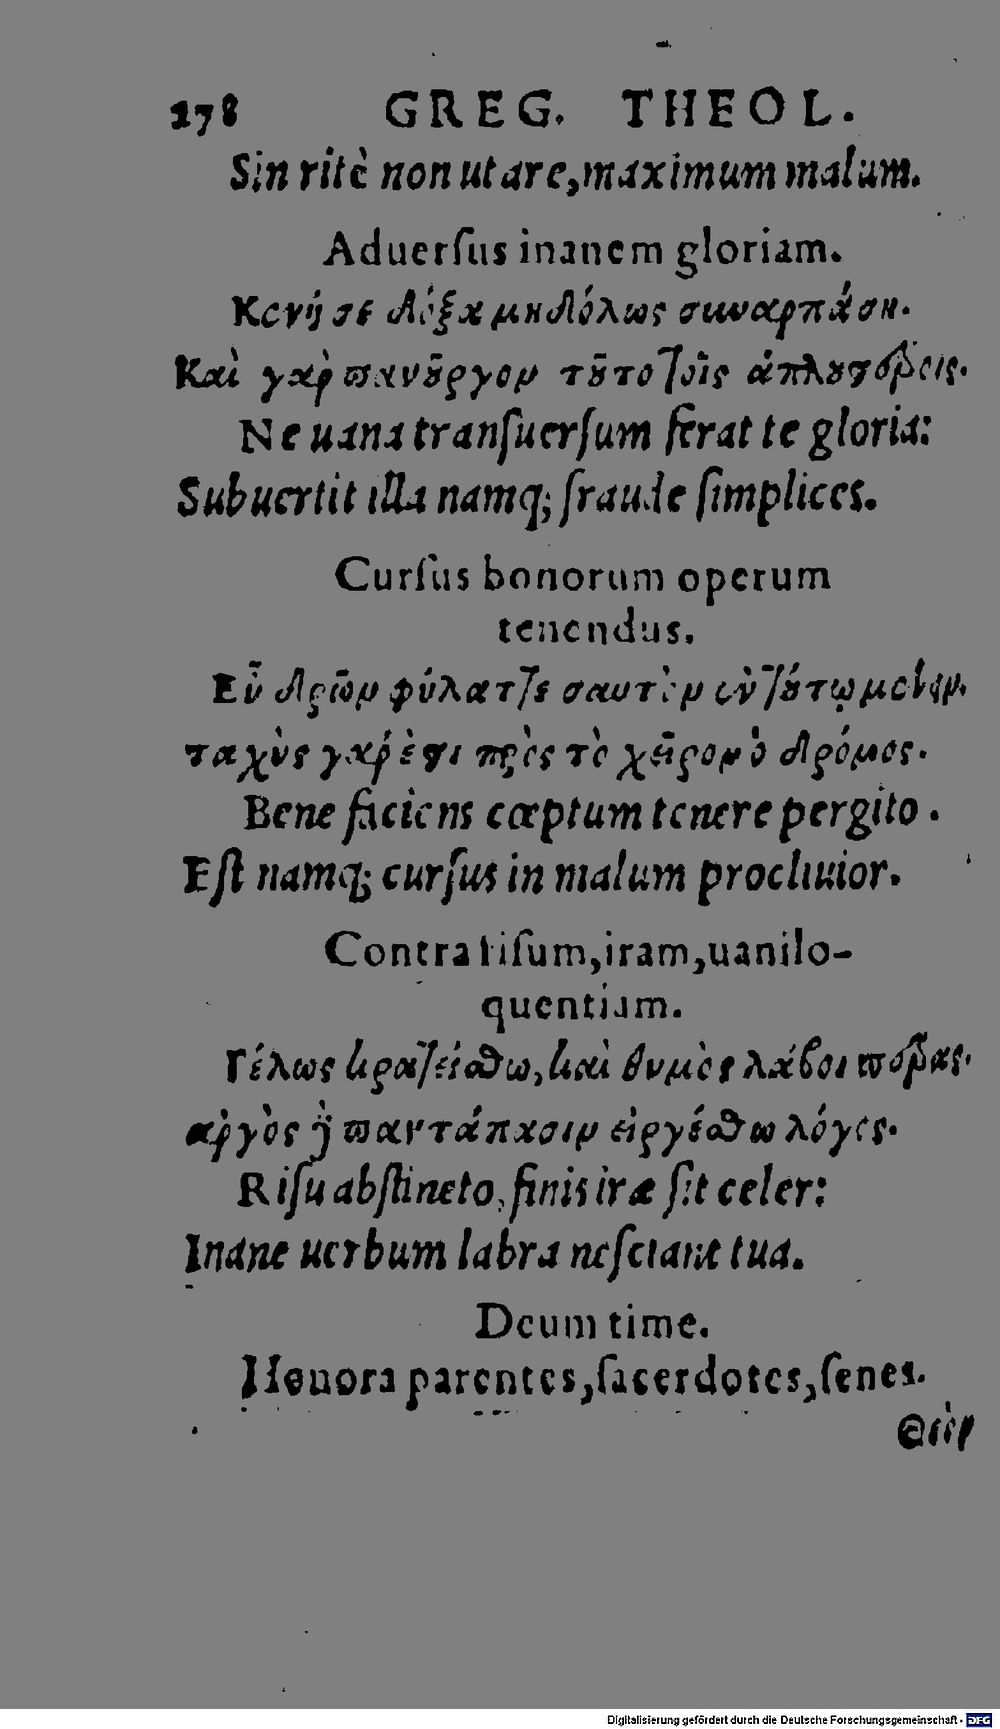 278 GREG. THEOL.
Sin ritè non utare, maximum malum.
Aduerſus inanem gloriam.
Κενή σε δόξα μὴ δόλως συναρπάση.
Καὶ γὰρ πανοῦργον τοῦτο τοῖς ἁπλουστέροις.
Ne uana tranſuerſum ferat te gloria:
Subuertit illa namq; fraude ſimplices.
Curſus bonorum operum
tenendus.
Εὖ δρῶν φύλαττε σαυτὸν ἐν τούτῳ μένειν.
ταχὺς γάρ ἐστι πρὸς τὸ χεῖρον ὁ δρόμος.
Bene faciens cœptum tenere pergito.
Eſt namq; curſus in malum procliuior.
Contra riſum, iram, uanilo-
quentiam.
Γέλως κρατείσθω, καὶ θυμὸς λάβοι πέρας.
ἀργὸς παντάπασιν εἰργέσθω λόγος.
Riſu abſtineto, finis iræ ſit celer:
Inane uerbum labra neſciant tua.
Deum time.
Honora parentes, ſacerdotes, ſenes.
Θεὸν
Digitalisierung gefördert durch die Deutsche Forschungsgemeinschaft - DFG